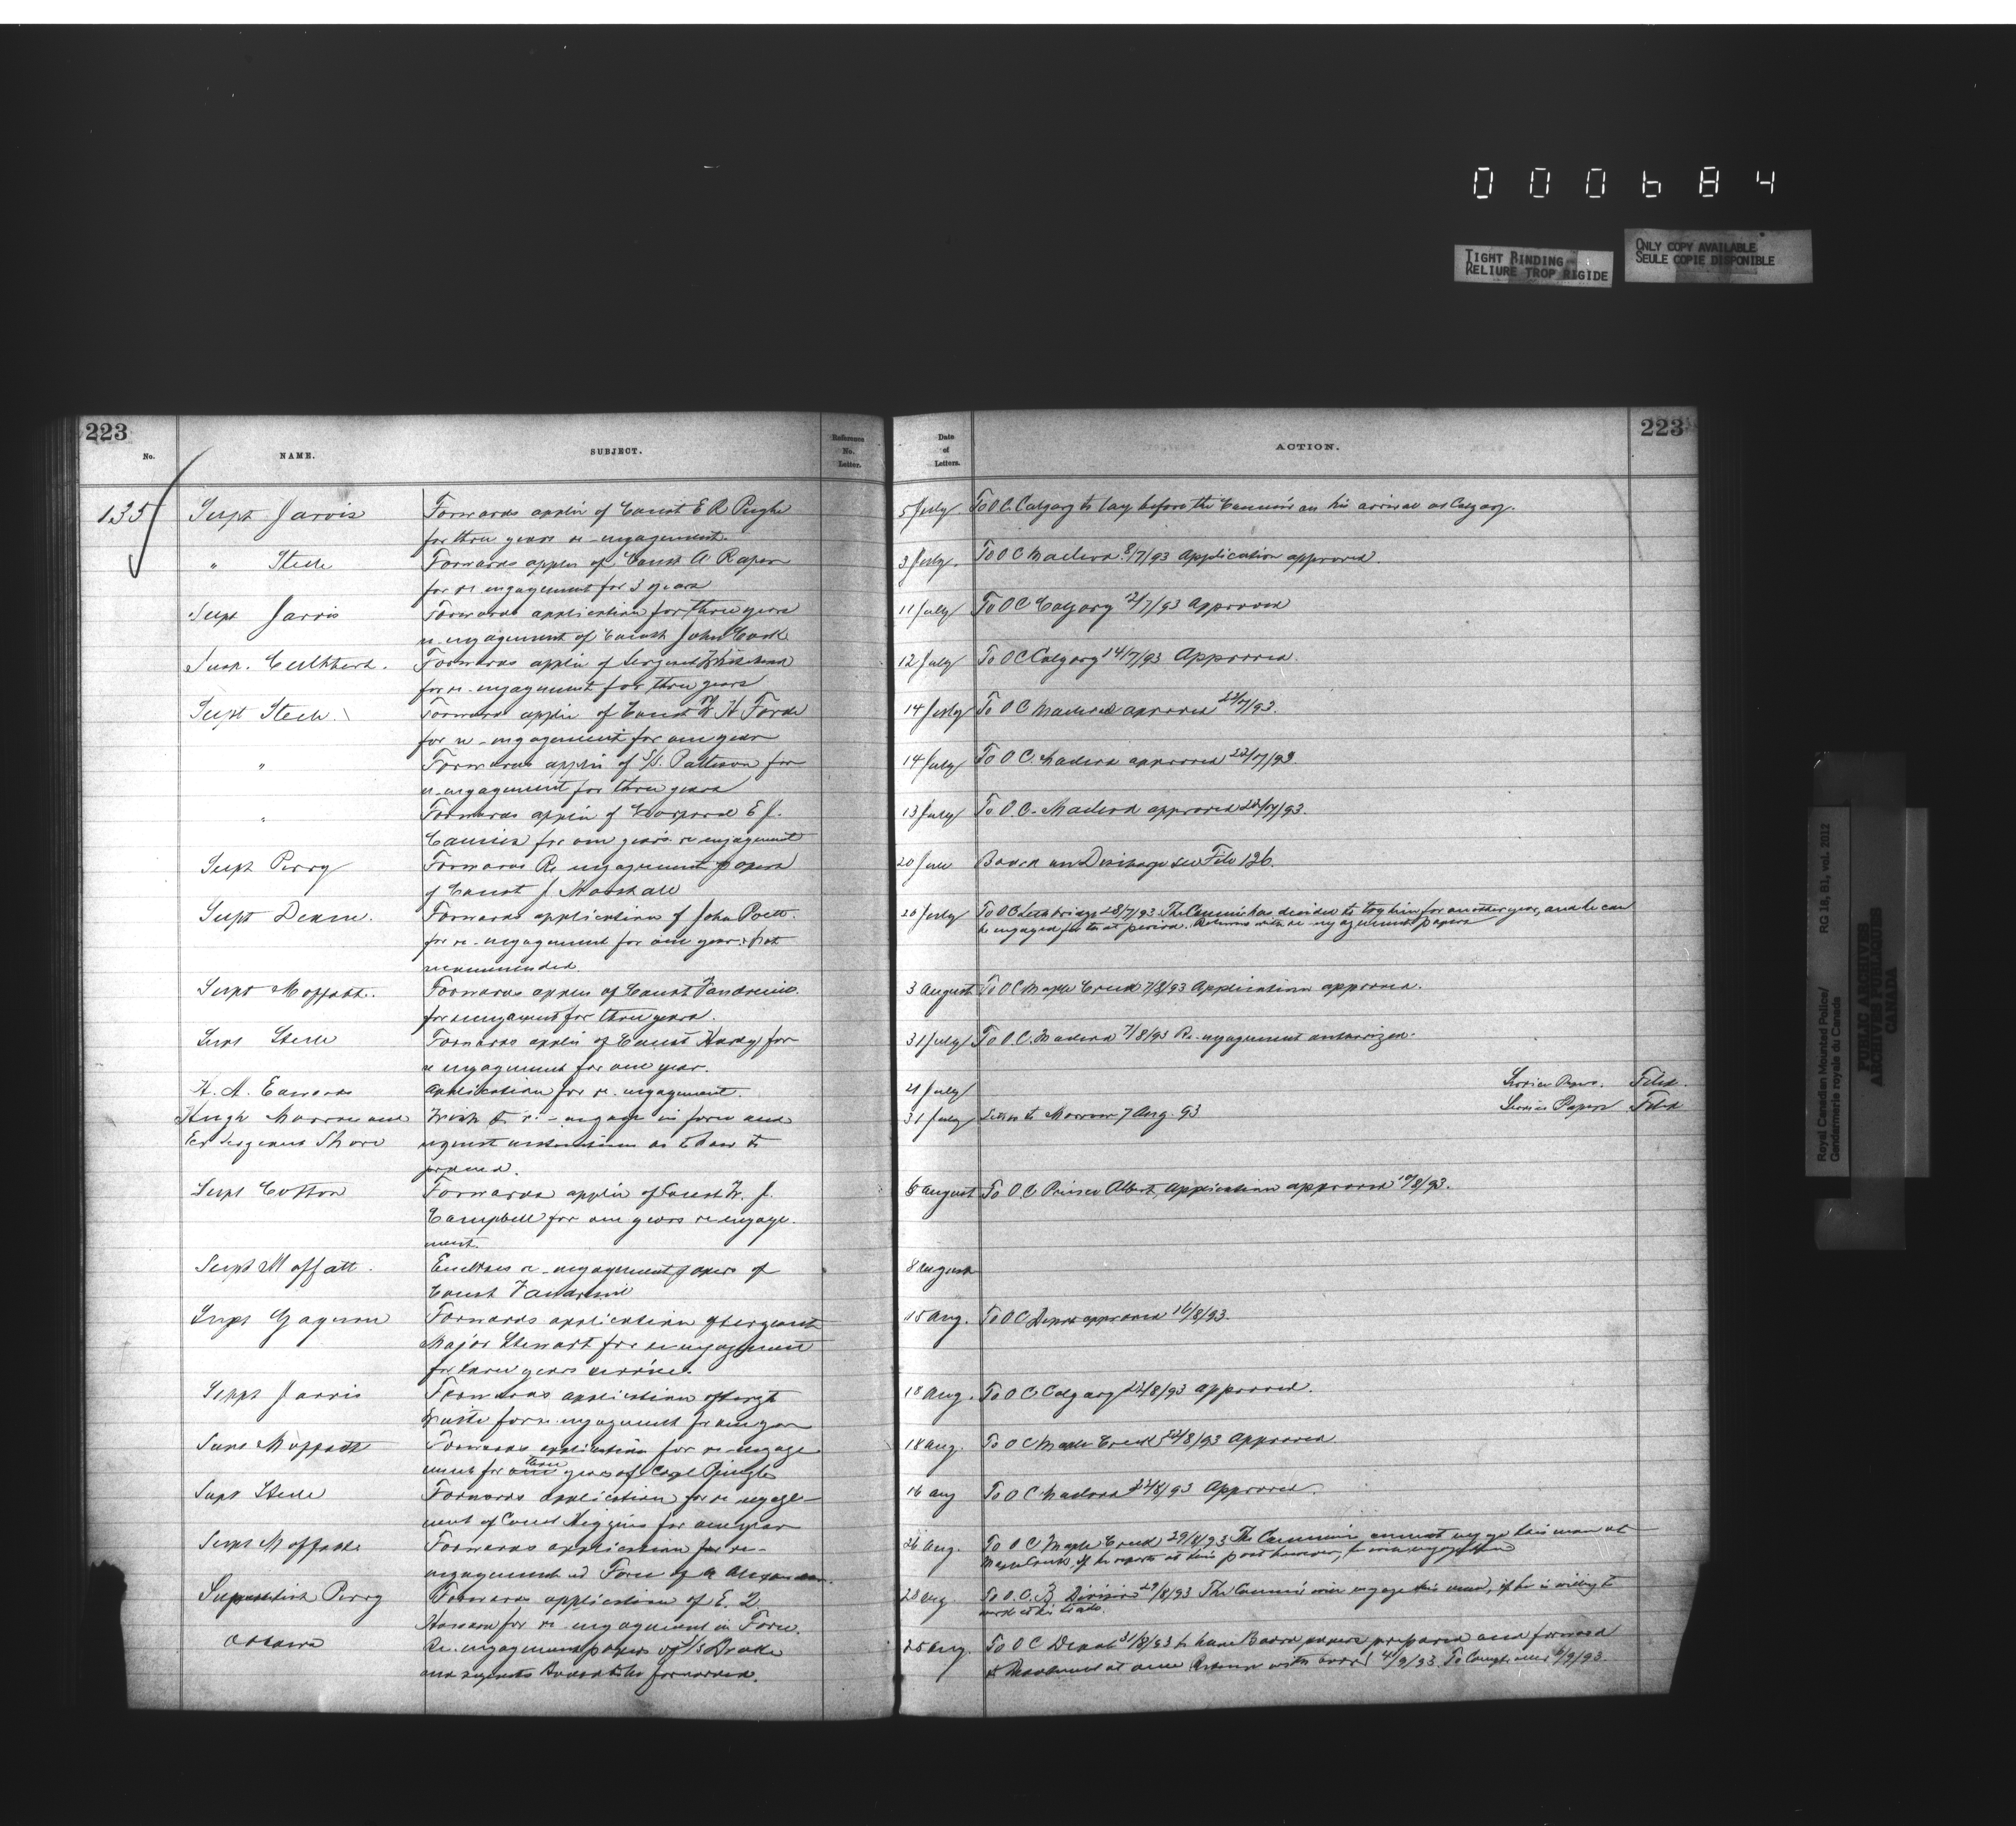 000684
TIGHT BINDING
RELIURE TROP RIGIDE
ONLY COPY AVAILABLE
SEULE COPIE DISPONIBLE
223
No.
NAME.
SUBJECT.
Reference
No.
Letter.
Date
of
Letters.
ACTION.
223
135
Supt Jarvis
Forwards applin of Const E R Pughe
for three years re-engagement.
5 July
To O C. Calgary to lay before the Commr on his arrival at Calgary.
" Steele
Forwards applin of Const A Raper
for re engagement for 3 years
3 July.
To O C Macleod 8/7/93 Application approved.
Supt Jarvis
Forwards application for three years
re-engagement of Const John Cook
11 July
To O C Calgary /7/93 Approved
Insp. Cuthbert.
Forwards applin of Sergeant
for re-engagement for three years
12 July
To O C Calgary 14/7/93 Approved.
Supt Steele.
Forwards applin of Const W H Forde
for re-engagement for one year
14 July
To O C Macleod approved 22/7/93.
"
Forwards applin of S/S. Pattison for
re-engagement for three years
14 July
To O C. Macleod approved 22/7/93.
"
Forwards applin of Corporal E J.
Camies for one year's re engagement
13 July
To O. C. Macleod approved 22/7/93.
Supt Perry
Forwards Re engagement papers
of Const J. Marshall
20 June
Board on Discharge see File 126.
Supt Deane.
Forwards application of John Pratt.
for re-engagement for one year: Not
recommended.
20 July
To O C Lethbridge 28/7/93 The Commr has decided to try him for another year, and he can
be engaged for that period. Returns with re-engagement papers
Supt Moffatt.
Forwards applin of Const Vandreuil
for reengagement for three years.
3 August
To O C Maple Creek 7/8/93 Application approved.
Supt Steele
Forwards applin of Const Hardy for
re engagement for one year.
31 July
To O. C. Macleod 7/8/93 Re-engagement authorized.
H. A. Edwards
Application for re-engagement.
July
Service Papers. Filed.
Hugh Morrow and
Ex Sergeant Shore
Wish to re-engage in force and
request instructions as to how to
proceed.
31 July
Letter to Morrow 7 Aug. 93
Service Papers Filed
Supt Cotton
Forwards applin of Const W. J.
Campbell for one years re engage-
ment.
August
To O. C Prince Albert, Application approved 10/8/93.
Supt Moffatt.
Encloses re-engagement papers of
Const Vandreuil
8 August
Supt Gagnon
Forwards application of Sergeant
Major Stewart for re engagement
for three years service.
15 Aug.
To O C Depot approved 16/8/93.
Supt Jarvis
Forwards application of Sergt
Waite for re-engagement for one year
18 Aug.
To O C Calgary 23/8/93 approved.
Supt Moffatt
Forwards application for re-engage
ment for three years of Corpl Pringle
18 Aug.
To O C Maple Creek 22/8/93 Approved.
Supt Steele
Forwards application for re engage-
ment of Const Higgins for one year
16 Aug
To O C Macleod 23/8/93 Approved.
Supt Moffatt
Forwards application for re-
engagement in Force of A Alexander.
26 Aug.
To O C Maple Creek 29/8/93 The Commr cannot engage this man at
Maple Creek, if he reports at this post however, he will engage him
Superintdt Perry
Forwards application of E. Q.
for re-engagement in Force.
28 Aug.
To O. C. B Division 29/8/93 The Commr will engage this man, if he is willing to
work at his trade.
Ottawa
Re-engagement papers of S/S Drake
and requests to be forwarded.
25 Aug.
To O C Depot 31/8/93 to have Board papers prepared and forward
at once. Return with 4/9/93. To Comptroller 6/9/93.
Royal Canadian Mounted Police/
Gendarmerie royale du Canada
RG 18, B1, vol. 2012
PUBLIC ARCHIVES
ARCHIVES PUBLIQUES
CANADA